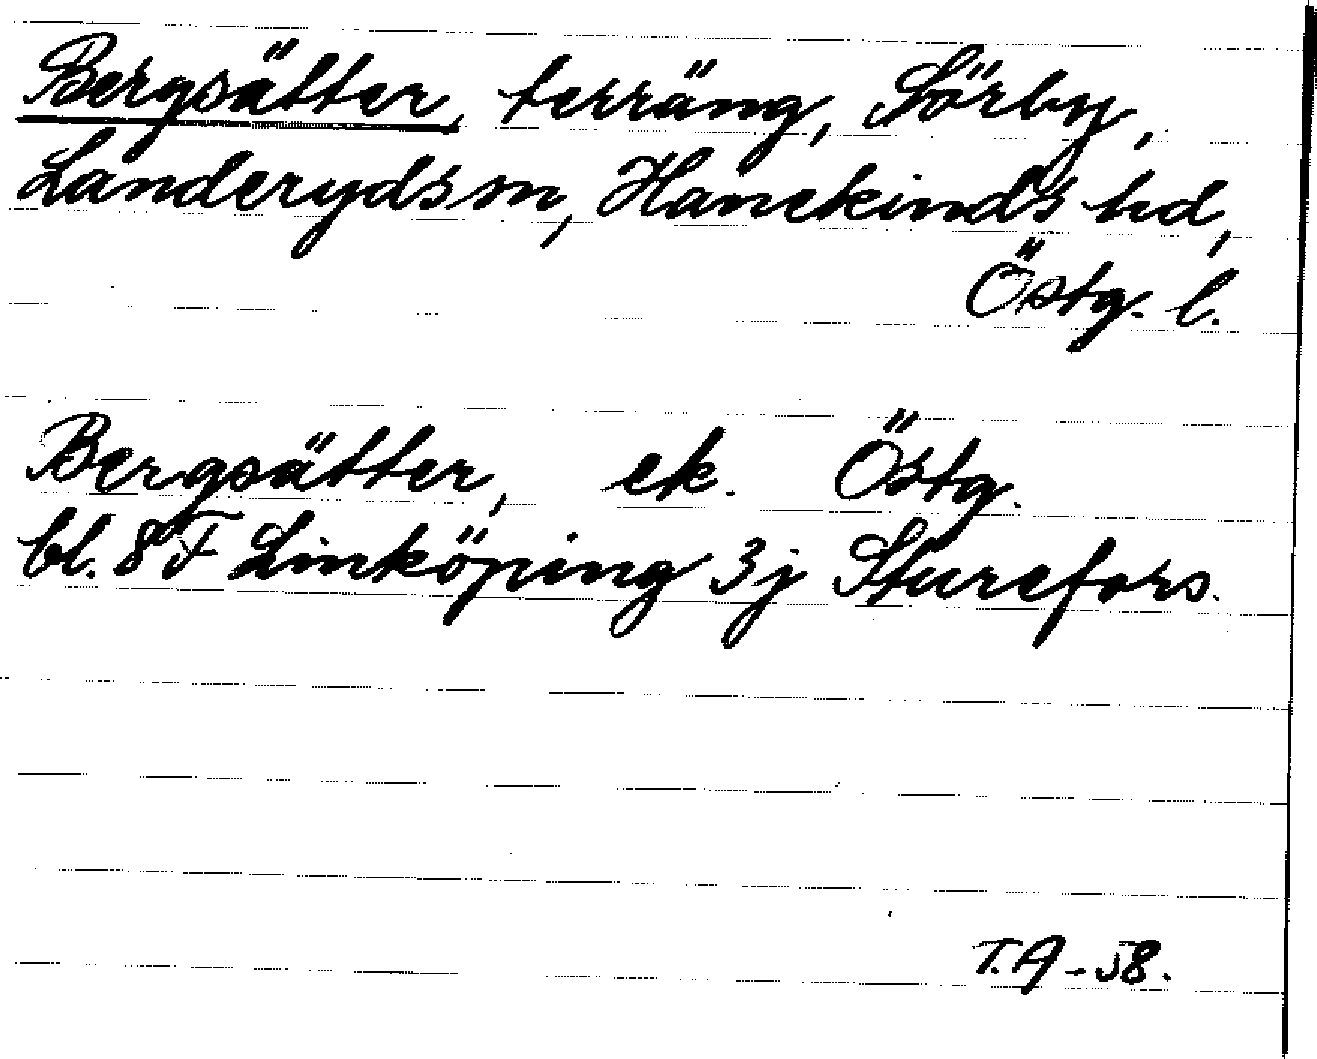 Bergsätter, terräng, Sörby,
Landeryds sn, Hanekinds hd,
Östg. l.
Bergsätter, ek. Östg.
bl. 8 F Linköping 3j Sturefors.
T.A -58.